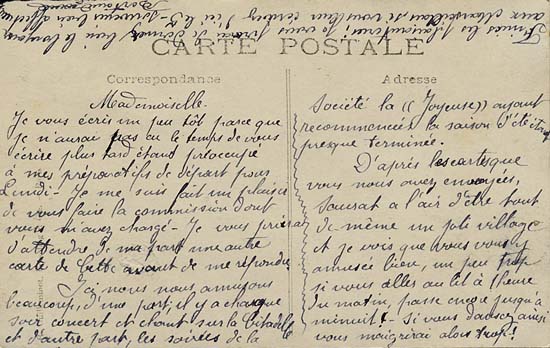 CARTE POSTALE
Correspondance
Mademoiselle
Je vous écris un peu tôt parce que
je n'aurai pas eu le temps de vous
écrire plus tard étant préoccupé
à mes préparatifs de départ pour
Lundi - Je me suis fait un plaisir
de vous faire la commission dont
vous m'avez chargé - Je vous prierai
d'attendre de ma part une autre
carte de Cette avant de me répondre
Ici nous nous amusons
beaucoup, d'une part, il y a chaque
soir concert et chant sur la Citadelle
et d'autre part, les soirées de la
Adresse
Société la ((Joyeuse)) ayant
recommencées la saison d'été étant
presque terminée.
D'après les cartes que
vous nous avez envoyées,
Saurat a l'air d'être tout
de même un joli village
et je vois que vous vous y
amusez bien, un peu trop
si vous allez au lit à 1 heure
du matin, passe encore jusqu'à
minuit - Si vous dansez ainsi
vous maigrirai alors trop!